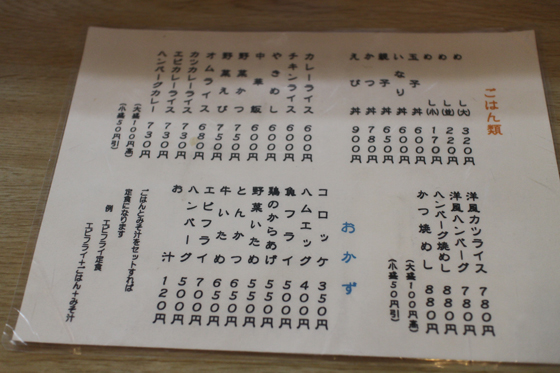 ごはん類
めし(大) 320円
めし(並) 220円
めし(小) 170円
玉子丼 600円
いなり丼 600円
親子丼 650円
かつ丼 780円
えび丼 900円
カレーライス 600円
チキンライス 600円
やきめし 600円
中華飯 600円
野菜かつ 750円
野菜えび 750円
オムライス 680円
カツカレーライス 730円
エビカレーライス 730円
ハンバーグカレー 730円
(大盛100円高)
(小盛50円引)
洋風カツライス 780円
洋風ハンバーグ 780円
ハンバーグ焼めし 880円
かつ焼めし 880円
(大盛100円高)
(小盛50円引)
おかず
コロッケ 350円
ハムエッグ 400円
魚フライ 500円
鶏のからあげ 550円
野菜いため 550円
とんかつ 650円
牛いため 650円
エビフライ 700円
ハンバーグ 500円
お汁 120円
ごはんとみそ汁をセットすれば
定食になります
例 エビフライ定食
エビフライ+ごはん+みそ汁